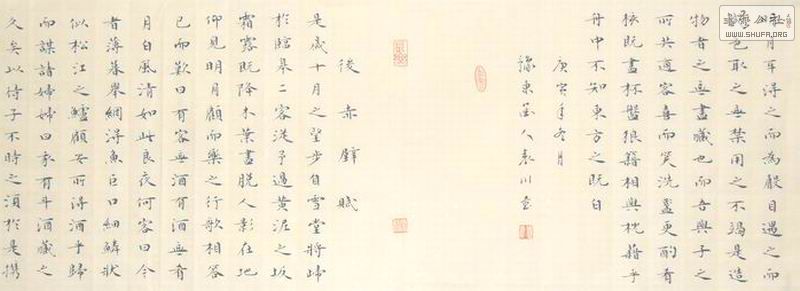 月耳得之而為聲目遇之而
色取之無禁用之不竭是造
物者之無盡藏也而吾與子之
所共適客喜而笑洗盞更酌肴
核既盡杯盤狼藉相與枕藉乎
舟中不知東方之既白
庚寅年冬月
豫東人袁川書
後赤壁賦
是歲十月之望步自雪堂將歸
於臨皋二客從予過黃泥之坂
霜露既降木葉盡脫人影在地
仰見明月顧而樂之行歌相答
已而歎曰有客無酒有酒無肴
月白風清如此良夜何客曰今
者薄暮舉網得魚巨口細鱗狀
似松江之鱸顧安所得酒乎歸
而謀諸婦婦曰我有斗酒藏之
久矣以待子不時之須於是攜
WWW.SHUFA.ORG